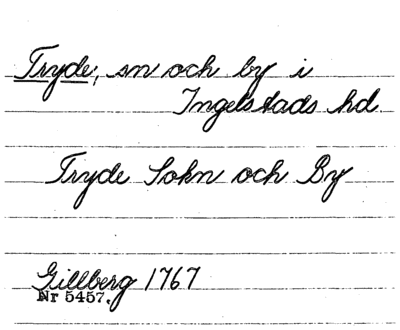 Tryde, sn och by i
Ingelstads hd.
Tryde Sokn och By
Gillberg 1767
Nr 5457.